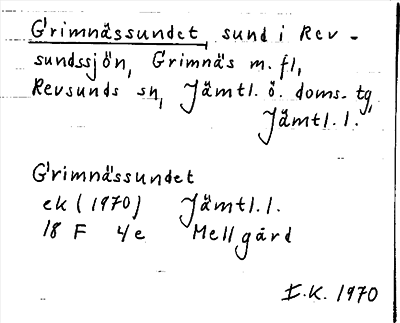 Grimnässundet, sund i Rev-
sundssjön, Grimnäs m.fl,
Revsunds sn, Jämtl. ö. doms. tg,
Jämtl. l.
Grimnässundet
ek (1970) Jämtl. l.
18 F 4 e Mellgård
I.K. 1970